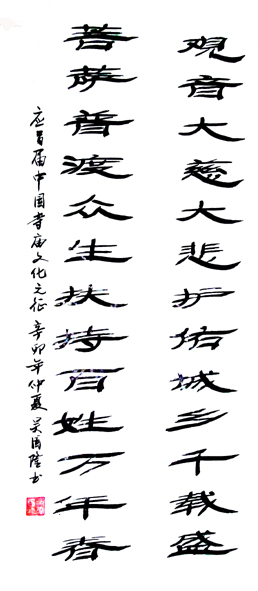 观音大慈大悲护佑城乡千载盛
菩萨普渡众生扶持百姓万年春
应首届中国寺庙文化之征 辛卯年仲夏 吴国隆书